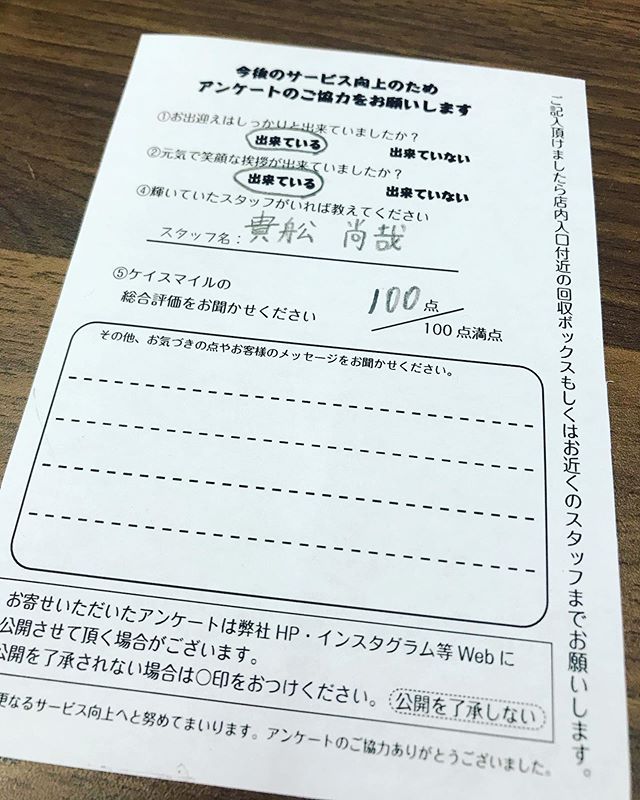 今後のサービス向上のため
アンケートのご協力をお願いします
①お出迎えはしっかりと出来ていましたか?
出来ている 出来ていない
②元気で笑顔な挨拶が出来ていましたか?
出来ている 出来ていない
④輝いていたスタッフがいれば教えてください
スタッフ名: 貴舩 尚哉
⑤ケイスマイルの
総合評価をお聞かせください
100点
100点満点
その他、お気づきの点やお客様のメッセージをお聞かせください。
お寄せいただいたアンケートは弊社HP・インスタグラム等Webに
公開させて頂く場合がございます。
公開を了承されない場合は〇印をおつけください。 公開を了承しない
更なるサービス向上へと努めてまいります。アンケートのご協力ありがとうございました。
ご記入頂けましたら店内入口付近の回収ボックスもしくはお近くのスタッフまでお願いします。